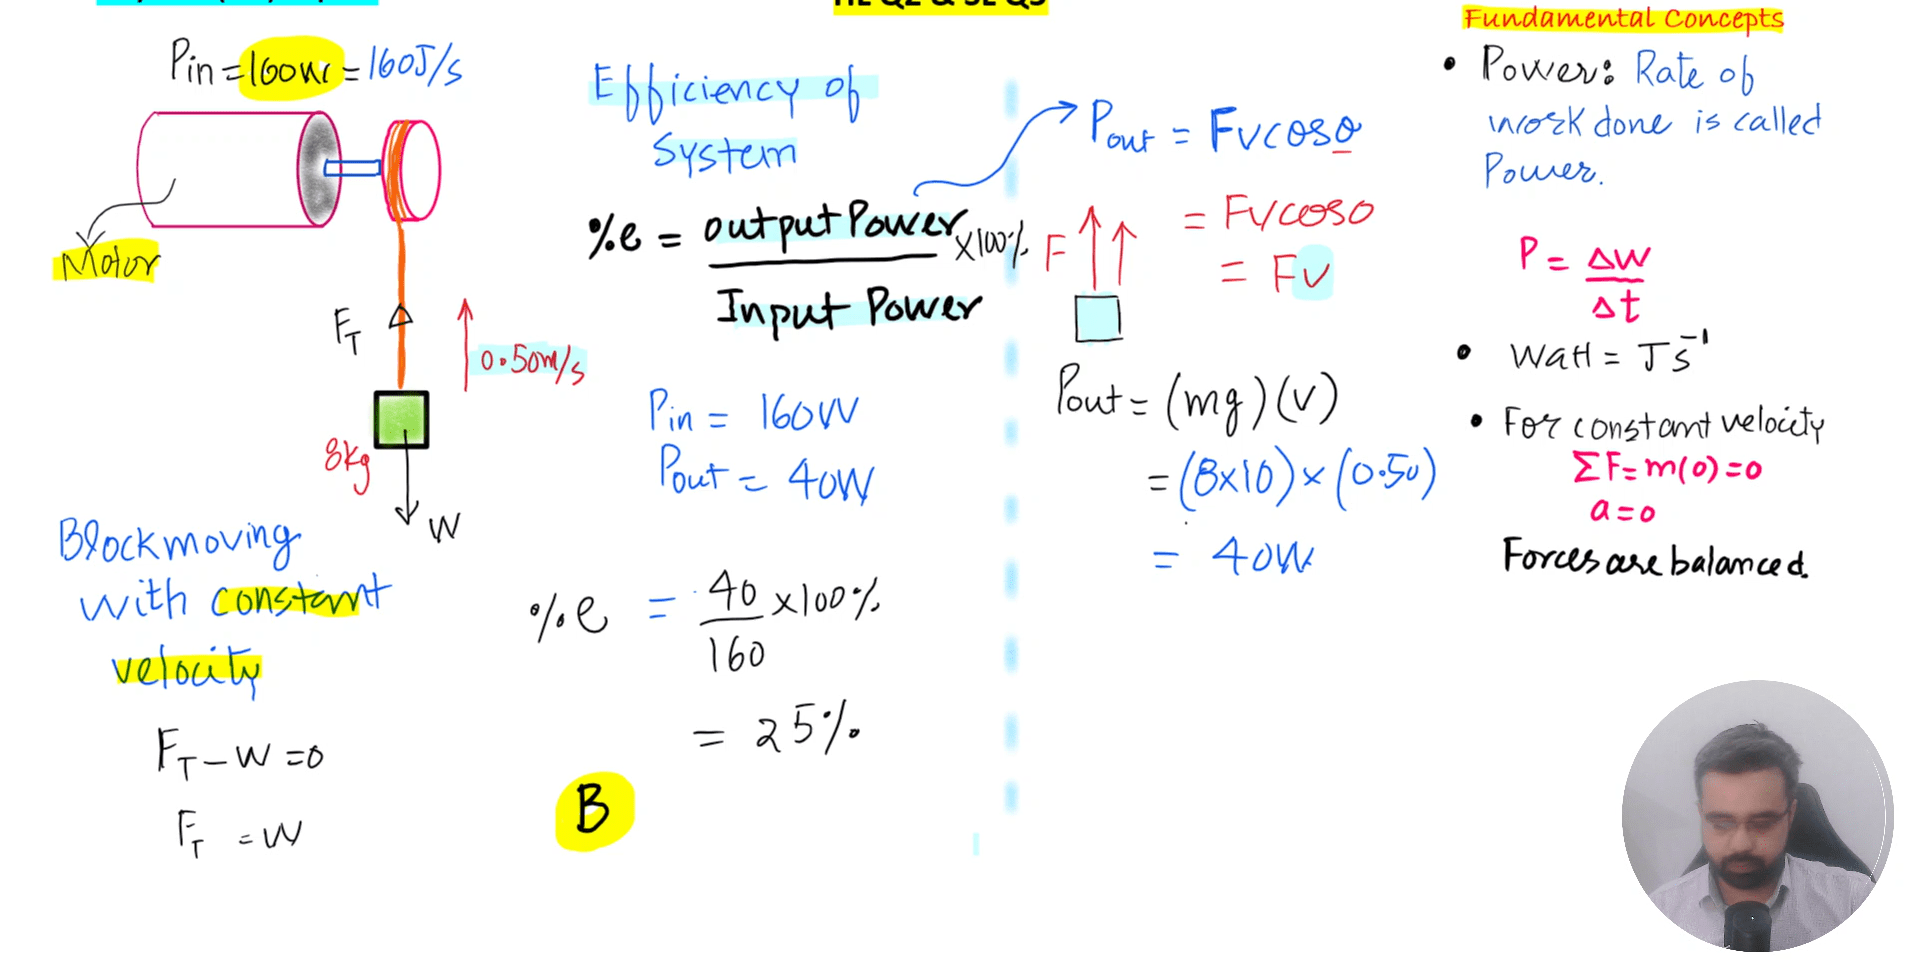 HL Q2 & SL Q3
Pin = 160W = 160J/s
Motor
F_T
0.50m/s
8kg
W
Block moving
with constant
velocity
F_T - W = 0
F_T = W
Efficiency of
System
%e = output Power / Input Power ×100%
Pin = 160W
Pout = 40W
%e = 40/160 ×100%
= 25%
B
Pout = Fvcosθ
= Fvcos0
= Fv
F
Pout = (mg)(v)
= (8×10)×(0.50)
= 40W
Fundamental Concepts
• Power: Rate of
work done is called
Power.
P = ΔW/Δt
• Watt = Js⁻¹
• For constant velocity
ΣF = m(0) = 0
a = 0
Forces are balanced.